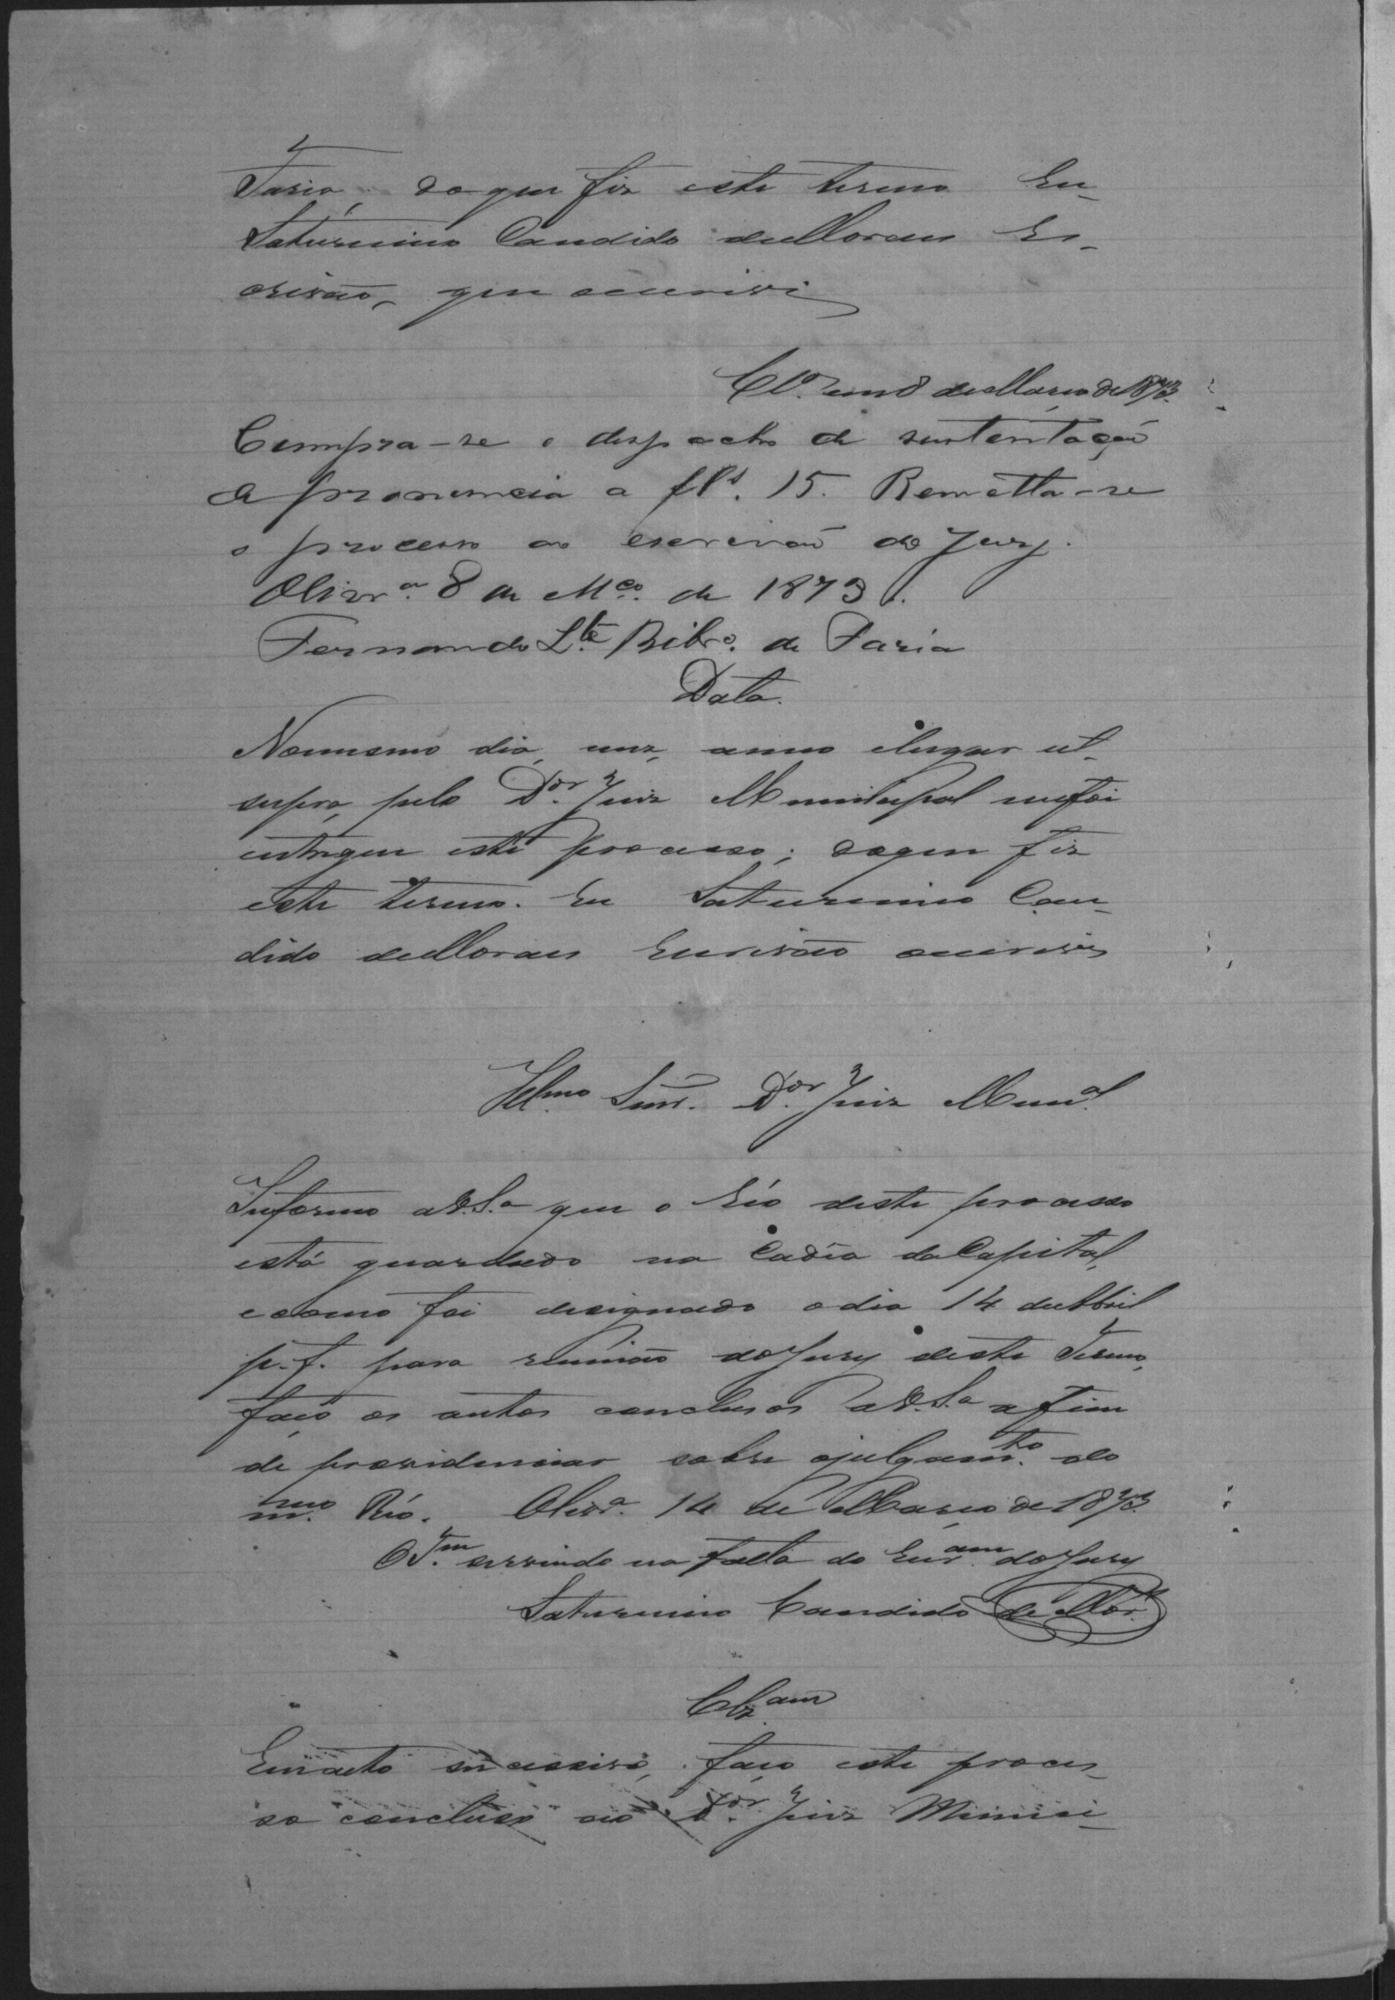 Faria, do que fiz este termo Eu
Saturnino Candido de Moraes Es-
crivão, que escrivi
Cl.º em 8 de Março de 1873.
Cumpra-se o despacho de sustentação
de pronuncia a fls. 15. Remetta-se
o processo ao escrivão do Jury.
Olivr.ª 8 de M.ço de 1873.
Fernando L.te Ribr.o de Faria
Data.
No mesmo dia, mez, anno e lugar ut
supra, pelo D.or Juiz Municipal me foi
entregue este processo; do que fiz
este termo. Eu Saturnino Can-
dido de Moraes Escrivão escrivi
Ill.mo Snr. D.or Juiz Mun.al
Informo a V.S.ª que o Réo deste processo
está guardado na Cadêa da Capital,
e como foi designado o dia 14 de Abril
p. f. para reunião do Jury deste Termo,
faço os autos conclusos a V.S.ª a fim
de providenciar sobre o julgam.to do
m.mo Réo. Olivr.ª 14 de Março de 1873.
O T.am servindo na falta do Escr.am do Jury
Saturnino Candido de Mor.es
Clz.am
Em acto successivo, faço este proces-
so concluso ao D.or Juiz Munici-